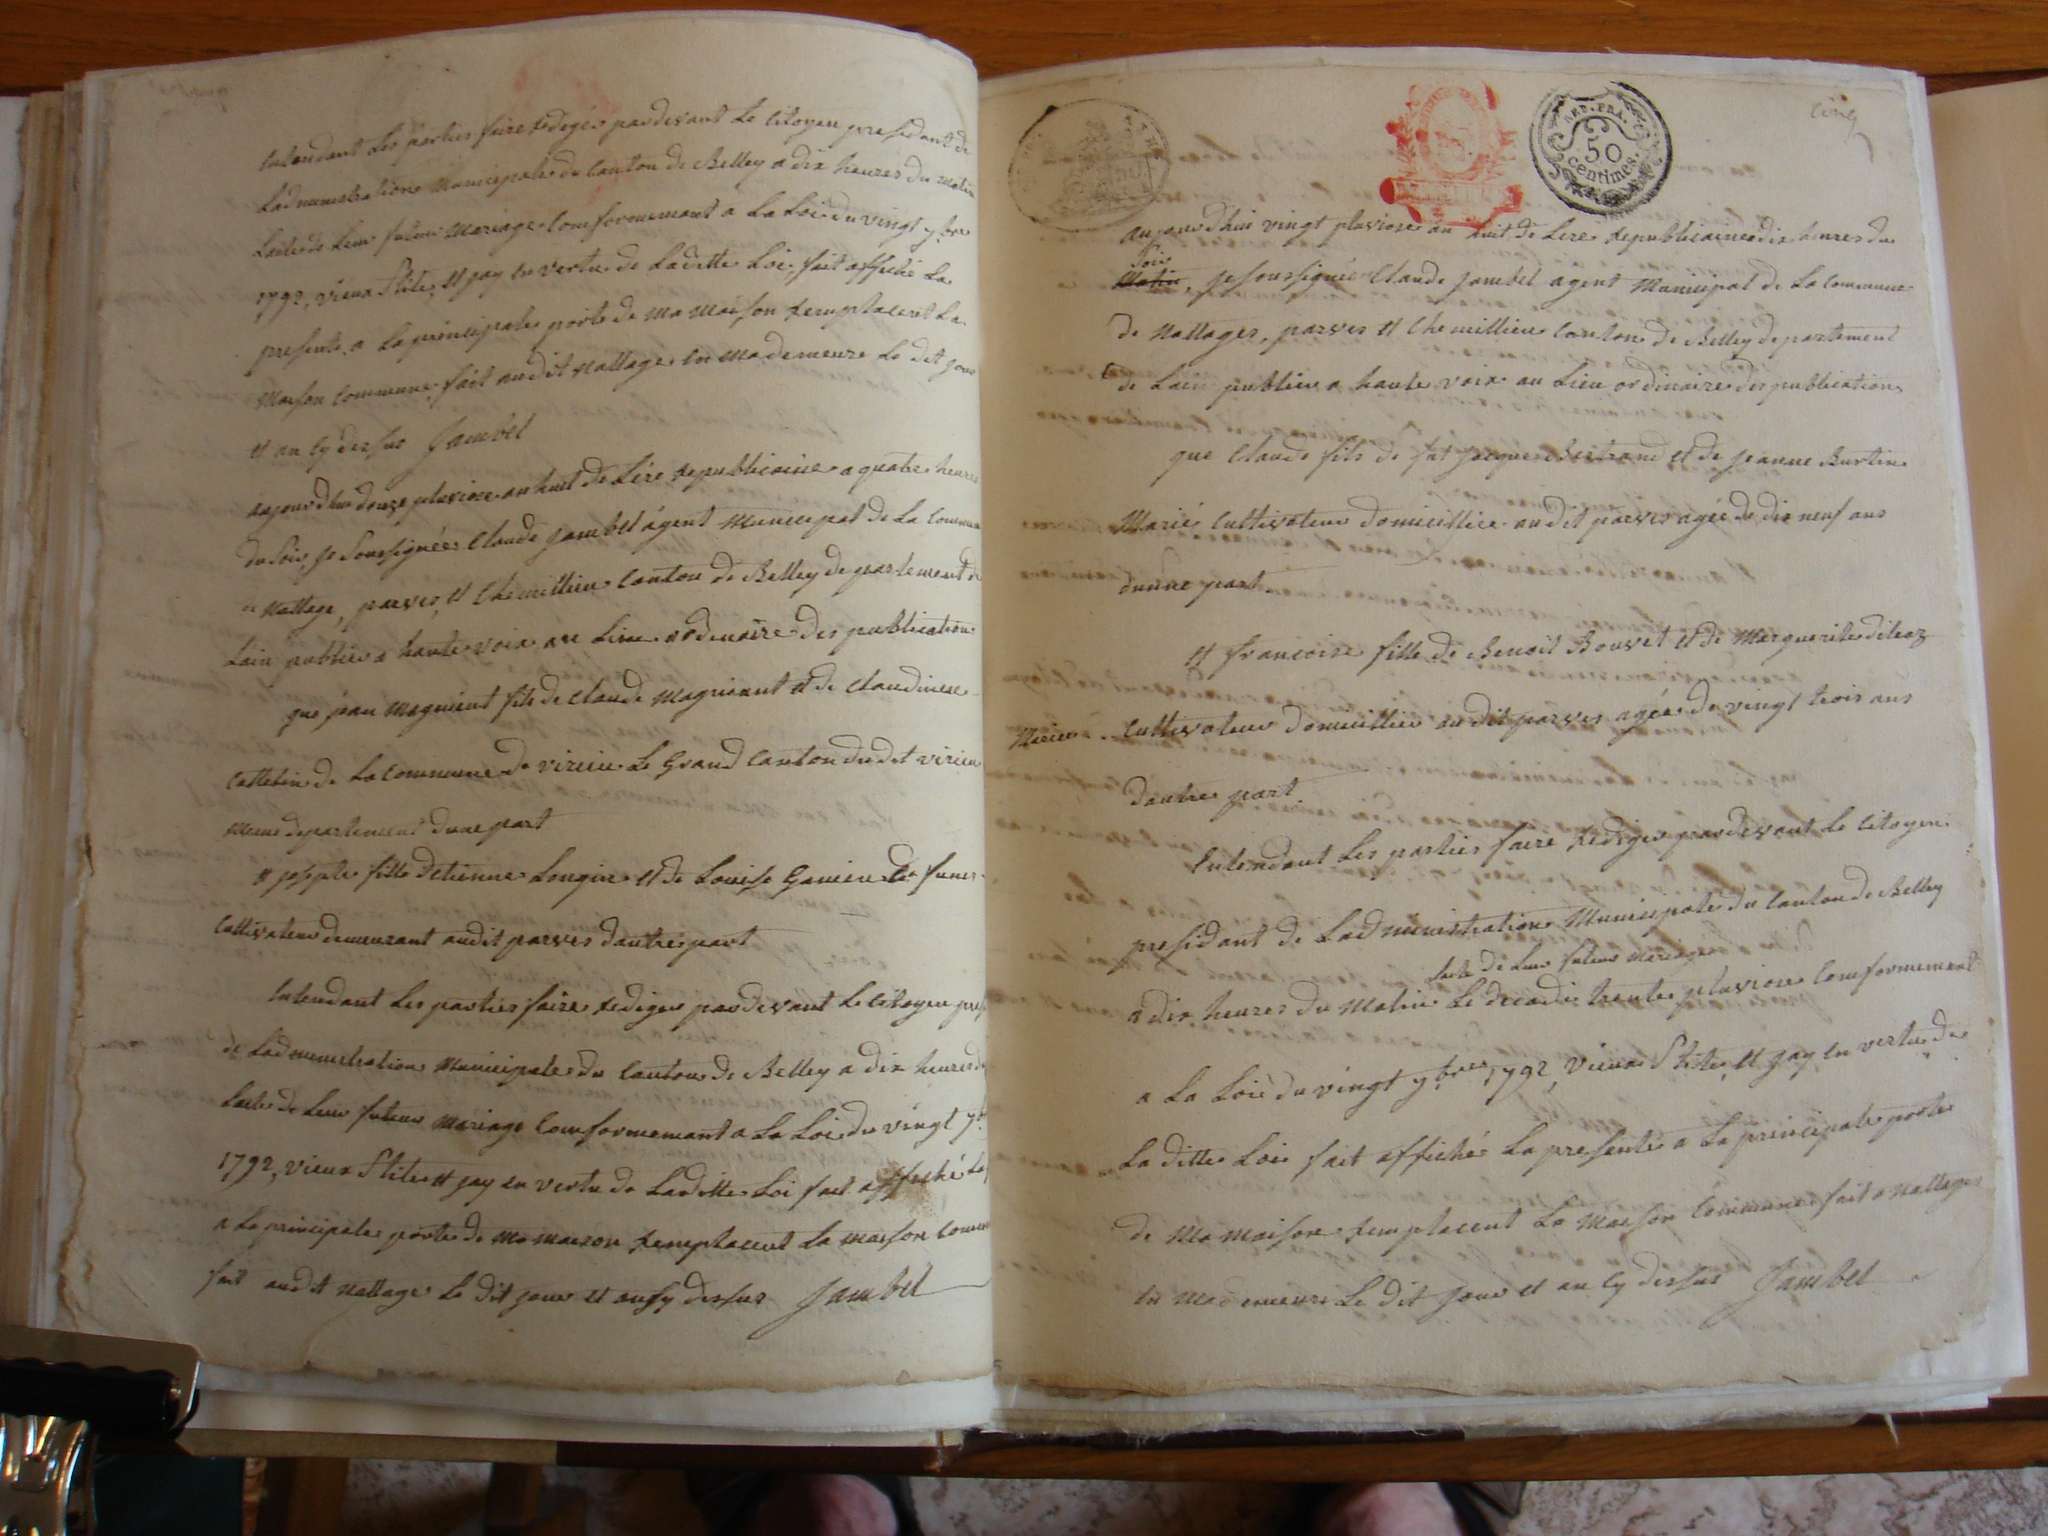 intendant Les parties faire Rediger pardevant Le Citoyen president de
Ladministration Municipale du Canton de Belley a dix heures du matin
Lacte de Leur futur Mariage Comformemant a La Loi du vingt 7.bre
1792, vieux Stile, et jay en vertu de Laditte Loi, fait affiché La
presente a La principale porte de Ma Maison Remplacent La
Maison Commune fait audit Nattage en Mademeure Le dit jour
et an Cy dessus Jambel
aujourdhui douze pluviose an huit de Lére Republicaine a quatre heures
du Soir, je Soussignée Claude Jambel agent Municipal de La Commune
de Nattage, parves, et Chemillieu Canton de Belley departement de
Lain publié a haute voix au Lieu ordinaire des publication
que jean Magnient fils de Claude Magnient et de Claudine
Catletin de La Commune de virieu Le Grand Canton dudit virieu
Meme departement dune part
et josephte fille detienne Longin et de Louise
Cultivateur demeurant audit parves dautre part
intendant Les parties faire Rediger pardevant Le Citoyen pres
de Ladministration Municipale du Canton de Belley a dix heures d
Lacte de Leur futeur Mariage Comformemant a La Loi du vingt 7.b
1792, vieux Stile et jay en vertu de Laditte Loi fait affiché La
a La principale porte de Ma maison Remplacent La maison Commune
fait audit Nattage Le dit jour et an Cy dessus Jambel
Cinq
REP. FRA.
50
Centimes.
aujourdhui vingt pluviose an huit de Lere Republicaine a dix heures du
Soir
Matin, Je Soussignée Claude Jambel agent Municipal de La Commune
de Nattages, parves et Chemillieu Canton de Belley departement
de Lain publiée a haute voix au Lieu ordinaire des publication
que Claude fils de fut jacque Bertrand et de jeanne Burtin
Mariés Cultivateur domicilliée audit parves agée de dix neuf ans
dunne part
et francoise fille de Benoit Bouvet et de Marguerite
Mariés Cultivateur domicilliée audit parves agée de vingt trois ans
dautre part
intendant Les parties faire Rediger pardevant Le Citoyen
presidant de Ladministration Municipale du Canton de Belley
Lacte de Leur futeur Mariage
a dix heures du Matin Le decadi trente pluviose Comformement
a La Loi du vingt 7.bre 1792, vieux Stile, et jay en vertu de
La ditte Loi fait affiché La presente a La principale porte
de Ma Maison Remplacent La Maison Commune fait a Nattages
en Mademeure Le dit jour et an Cy dessus Jambel